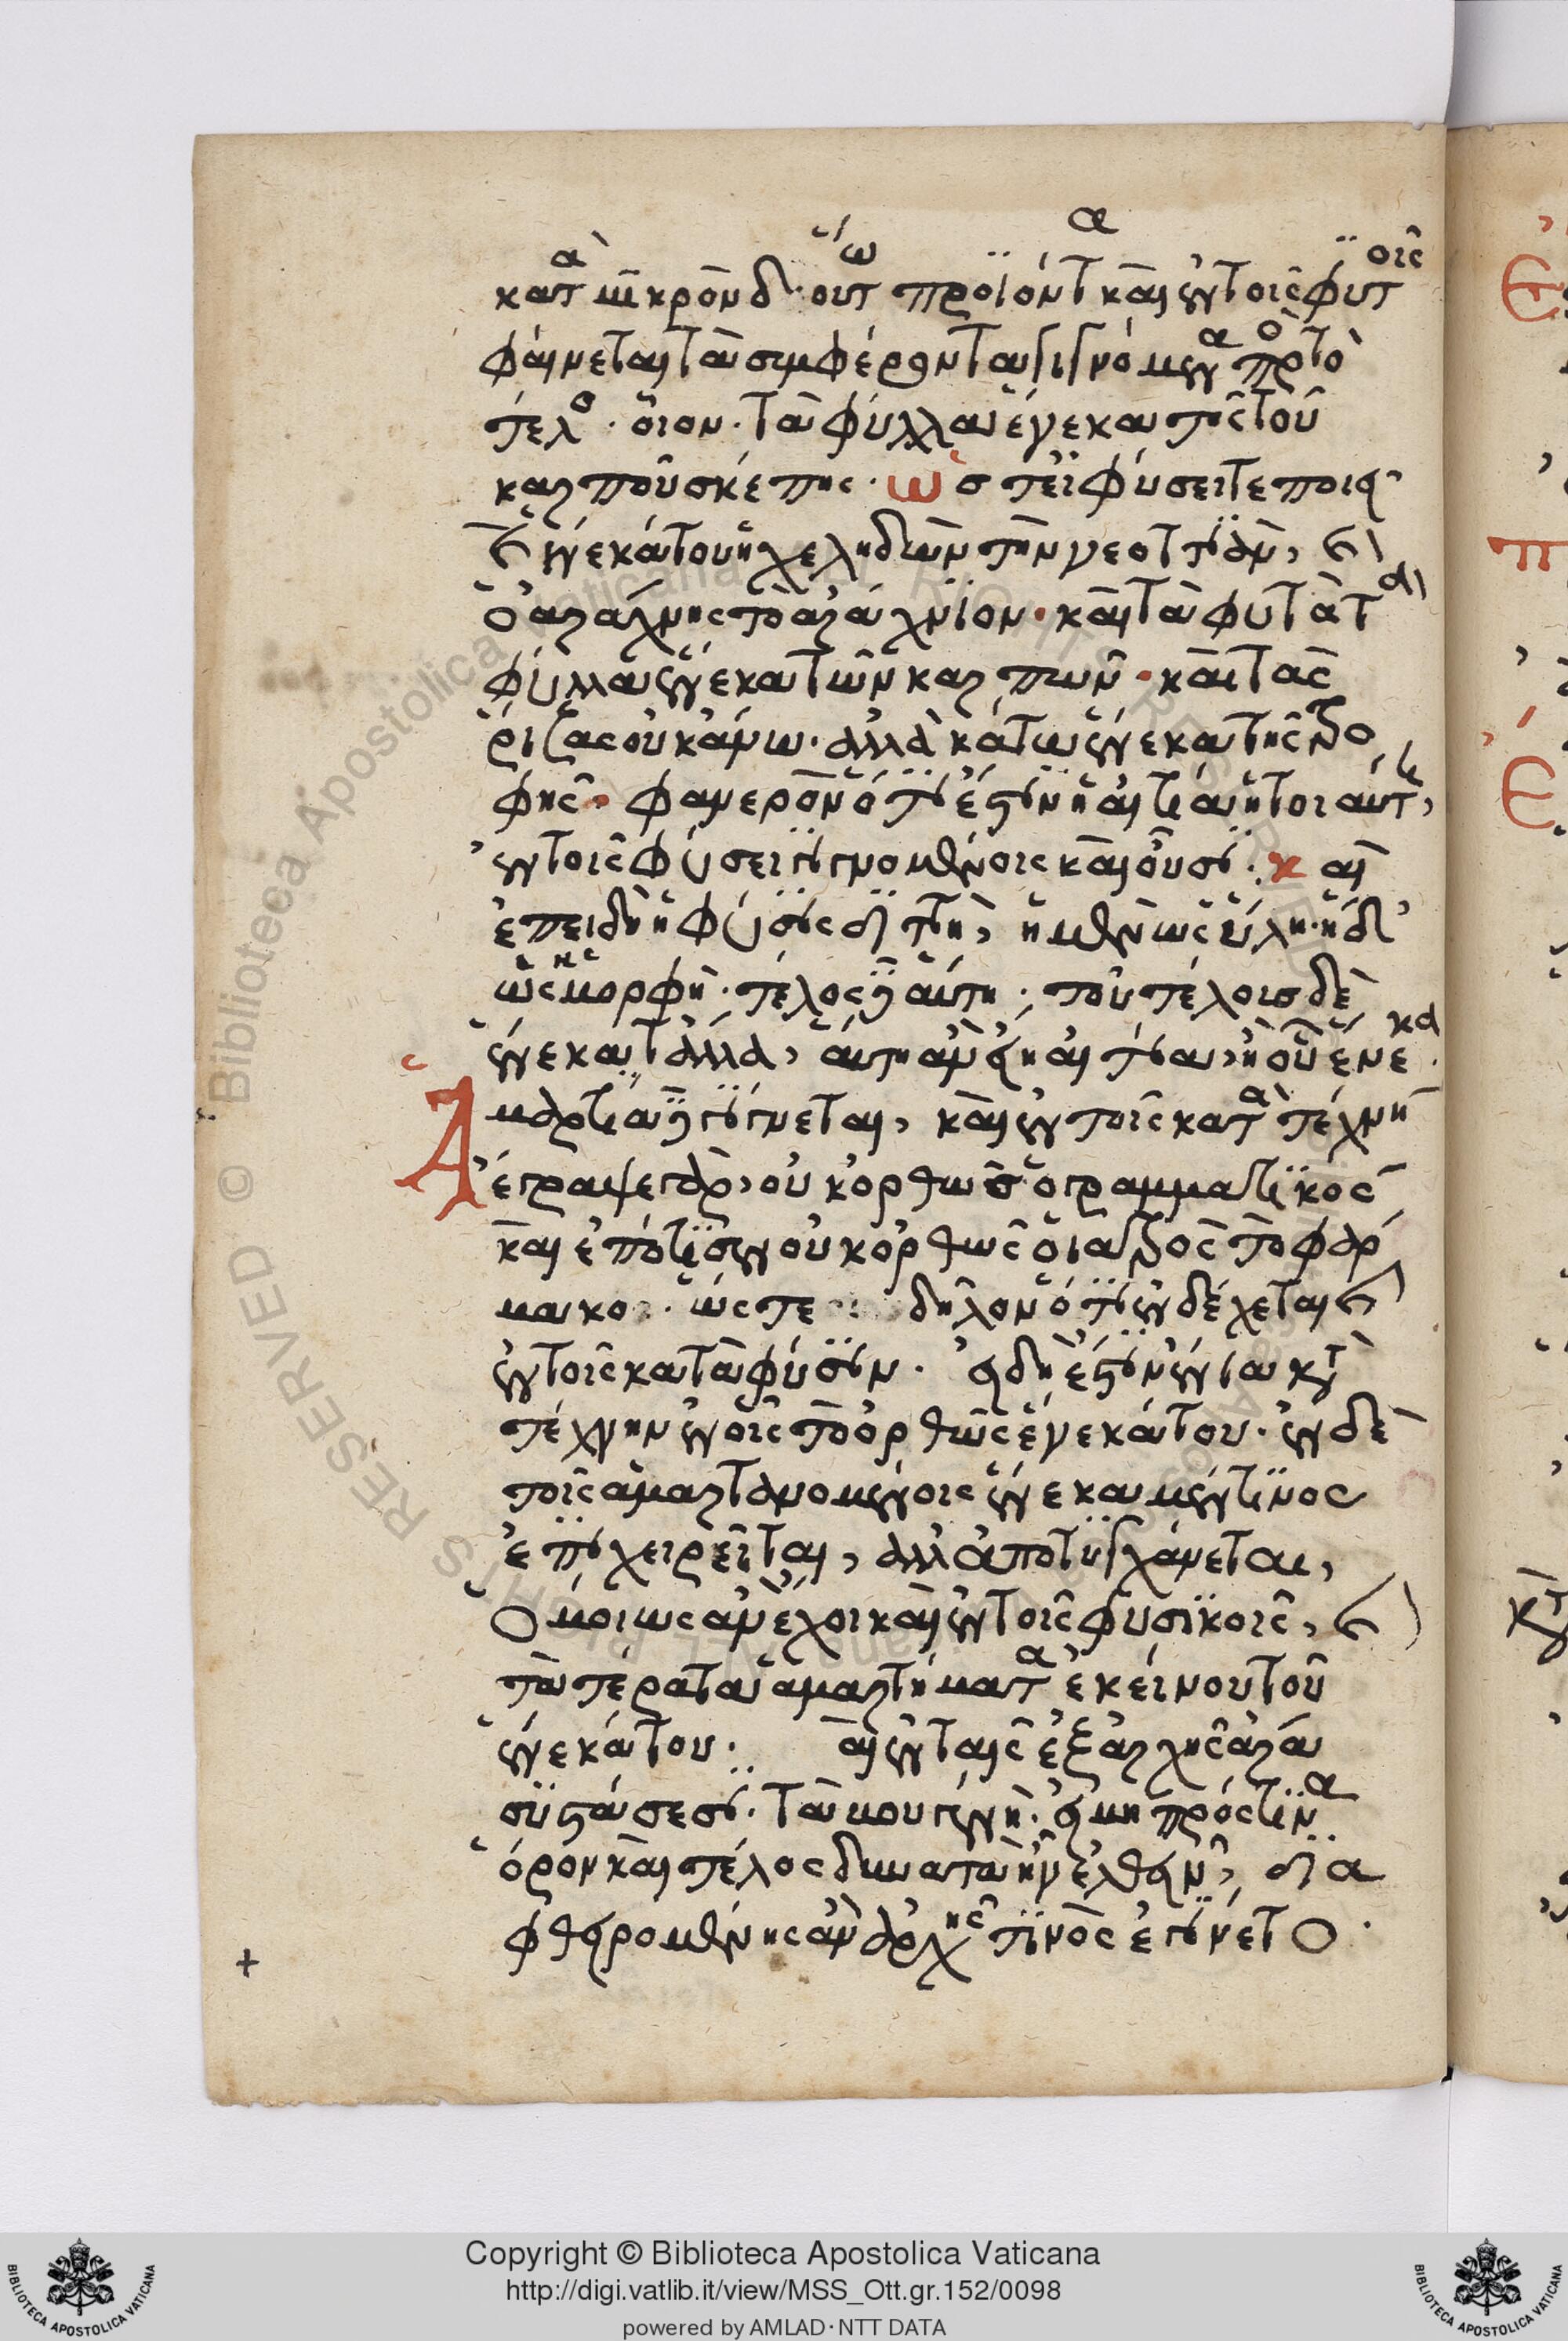 κατὰ μικρὸν δ' οὕτω προϊόντα καὶ ἐν τοῖς φυτοῖς
φαίνεται τὰ συμφέροντα γιγνόμενα πρὸς τὸ
τέλος· οἷον· τὰ φύλλα ἕνεκα τῆς τοῦ
καρποῦ σκέπης· ὥστ' εἰ φύσει τε ποιεῖ
καὶ ἕνεκά του ἡ χεληδὼν τὴν νεοττιὰν, καὶ
ὁ ἀράχνης τὸ ἀράχνιον· καὶ τὰ φυτὰ τὰ
φύλλα ἕνεκα τῶν καρπῶν· καὶ τὰς
ῥίζας οὐκ ἄνω· ἀλλὰ κάτω ἕνεκα τῆς τρο
φῆς· φανερὸν ὅτι ἔστιν ἡ αἰτία ἡ τοιαύτη,
ἐν τοῖς φύσει γιγνομένοις καὶ οὖσι· καὶ
ἐπειδὴ ἡ φύσις διττὴ, ἡ μὲν ὡς ὕλη· ἡ δ'
ὡς ἡ μορφή· τέλος δὲ αὕτη· τοῦ τέλους δὲ
ἕνεκα τἆλλα, αὕτη ἂν εἴη αἰτία, ἡ οὗ ἕνεκα·
Ἁμαρτία δὲ γίγνεται, καὶ ἐν τοῖς κατὰ τέχνην
ἔγραψε γὰρ, οὐκ ὀρθῶς ὁ γραμματικὸς
καὶ ἐπότισεν οὐκ ὀρθῶς ὁ ἰατρὸς τὸ φάρ
μακον· ὥστε δῆλον ὅτι ἐνδέχεται καὶ
ἐν τοῖς κατὰ φύσιν· εἰ δὴ ἔστιν ἔνια κατὰ
τέχνην ἐν οἷς τὸ ὀρθῶς ἕνεκά του· ἐν δὲ
τοῖς ἁμαρτανομένοις ἕνεκα μέν τινος
ἐπιχειρεῖται, ἀλλ' ἀποτυγχάνεται,
Ὁμοίως ἂν ἔχοι καὶ ἐν τοῖς φυσικοῖς, καὶ
τὰ τέρατα ἁμαρτήματα ἐκείνου τοῦ
ἕνεκά του· αὶ ἐν ταῖς ἐξ ἀρχῆς ἄρα
συστάσεσι· τὰ βουγενῆ· εἰ μὴ πρός τινα
ὅρον καὶ τέλος δυνατὰ ἦν ἐλθεῖν, δια
φθειρομένης ἂν ἀρχῆς τινὸς ἐγίνετο·
+
Copyright © Biblioteca Apostolica Vaticana
http://digi.vatlib.it/view/MSS_Ott.gr.152/0098
powered by AMLAD·NTT DATA